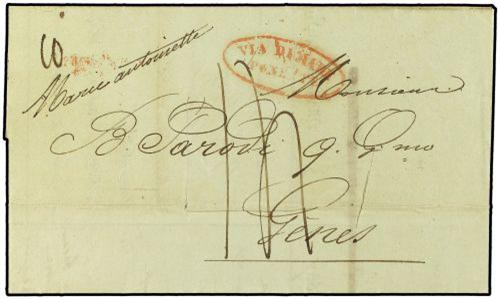 10.
Marie antoinette
VIA DI MARE
Monsieur
B. Parodi q. Gmo
Gênes